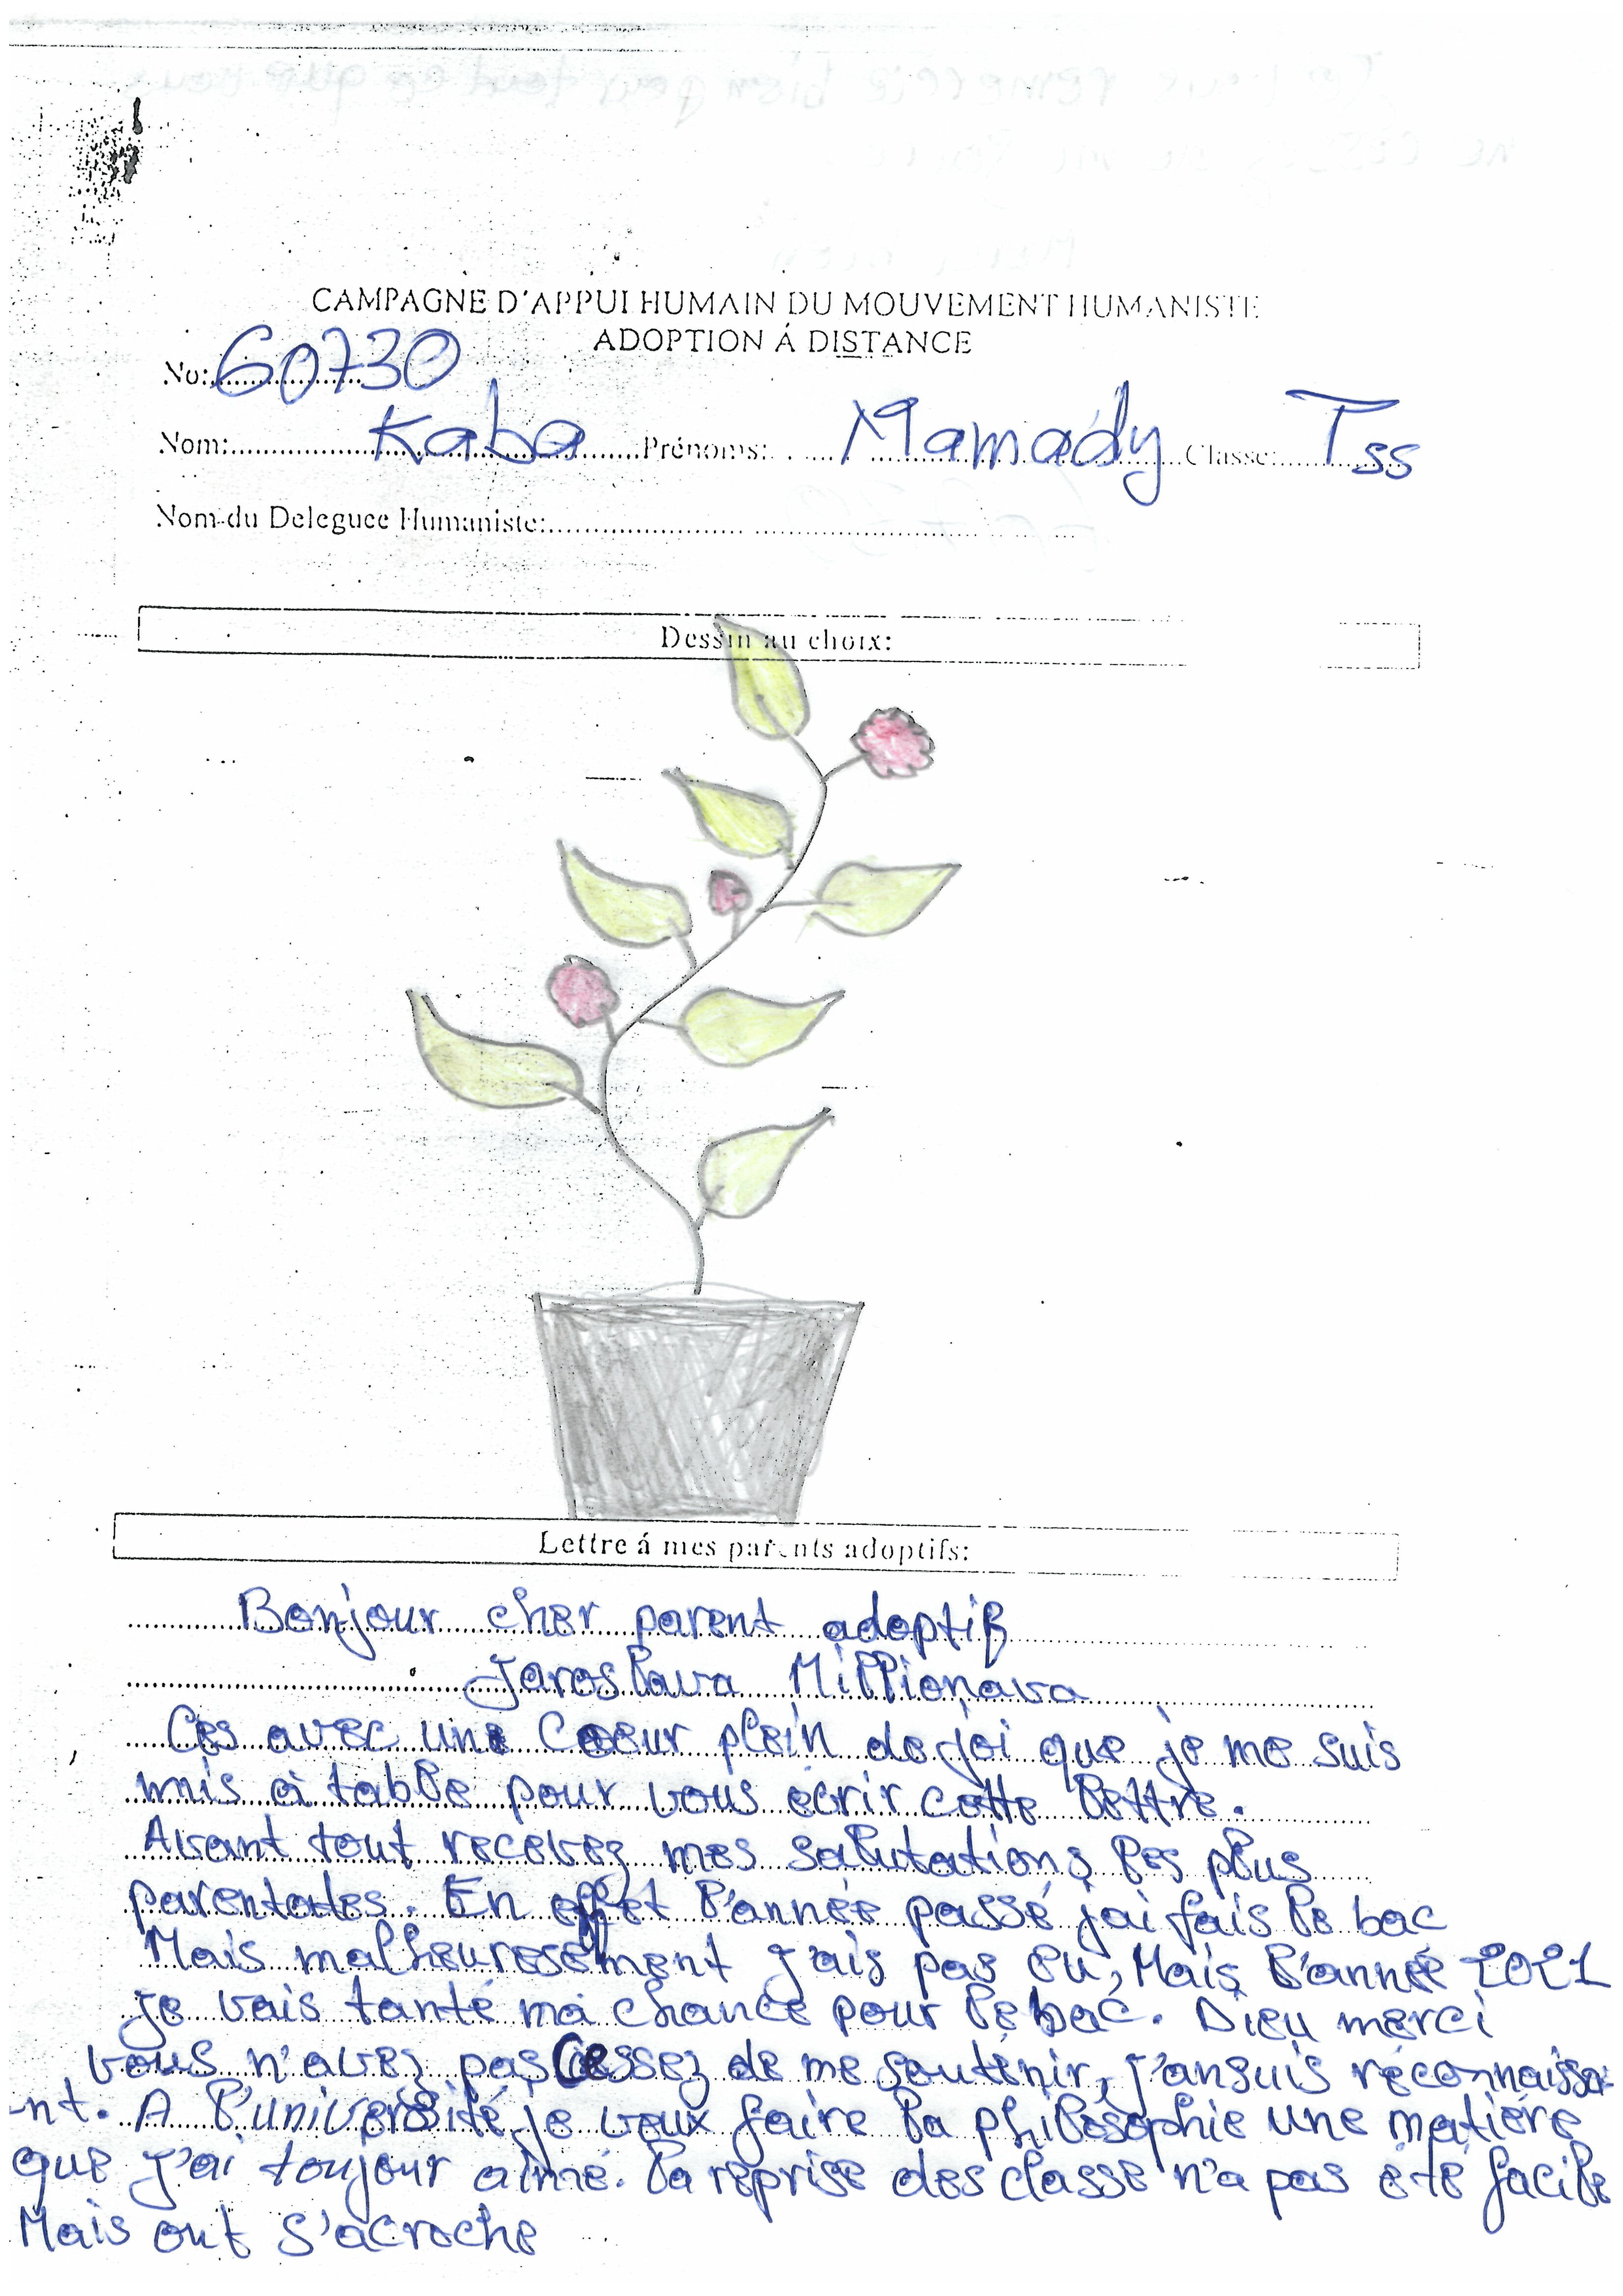 CAMPAGNE D'APPUI HUMAIN DU MOUVEMENT HUMANISTE
ADOPTION Á DISTANCE
No: 60730
Nom: Kaba Prénoms: Mamady Classe: Tss
Nom du Deleguee Humaniste:
Dessin au choix:
Lettre á mes parents adoptifs:
Bonjour cher parent adoptif
Jaroslava Millionava
Ces avec une Coeur plein de joi que je me suis
mis à table pour vous écrir cette lettre.
Avant tout recevez mes salutations les plus
parentales. En effet l'année passé j'ai fais le bac
Mais malheuresement j'ais pas eu, Mais l'année 2021
je vais tanté ma chance pour le bac. Dieu merci
vous n'avez pas Cessez de me soutenir, j'ansuis réconnaissa-
-nt. A l'université je veux faire la philosophie une matière
que j'ai toujour aimé. la reprise des classe n'a pas été facile
Mais ont s'acroche